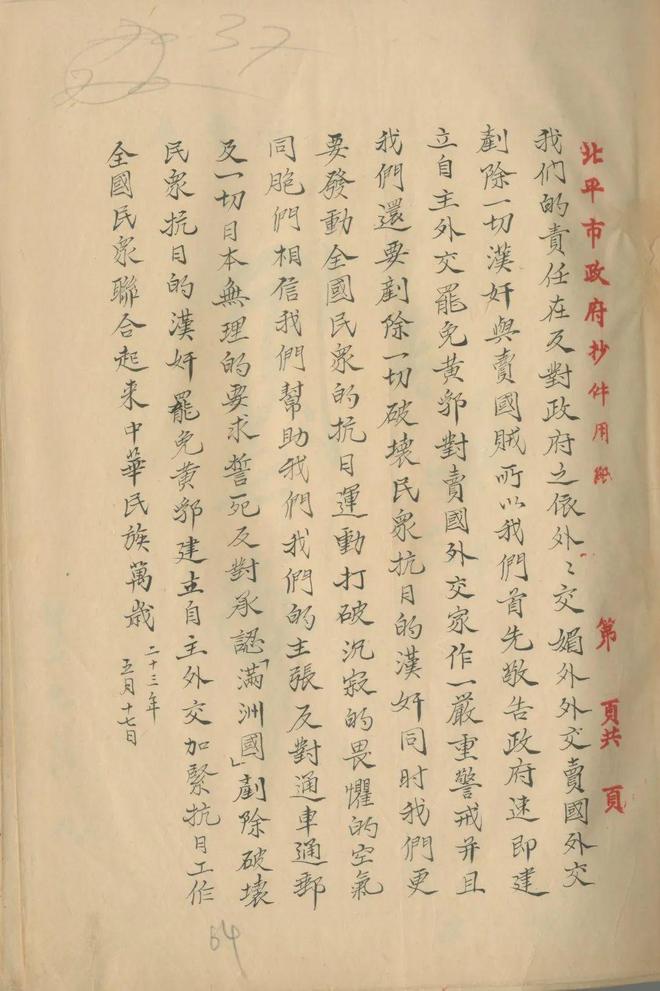 37
北平市政府抄件用紙 第 頁共 頁
我们的責任在反對政府之依外〻交媚外外交賣國外交
剷除一切漢奸與賣國賊所以我們首先敬告政府速即建
立自主外交罷免黄郛對賣國外交家作一嚴重警戒并且
我們還要剷除一切破壞民衆抗日的漢奸同时我們更
要發動全國民衆的抗日運動打破沉寂的畏懼的空氣
同胞們相信我們幫助我們我們的主張反對通車通郵
及一切日本無理的要求誓死反對承認「滿洲國」剷除破壞
民衆抗日的漢奸罷免黄郛建立自主外交加緊抗日工作
全國民衆聯合起来中華民族萬歲
二十三年
五月十七日
64